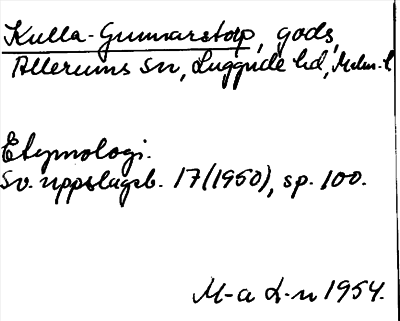 Kulla-Gunnarstorp, gods,
Allerums sn, Luggude hd, Malm. l
Etymologi.
Sv. uppslagsb. 17 (1950), sp. 100.
M-a L-n 1954.